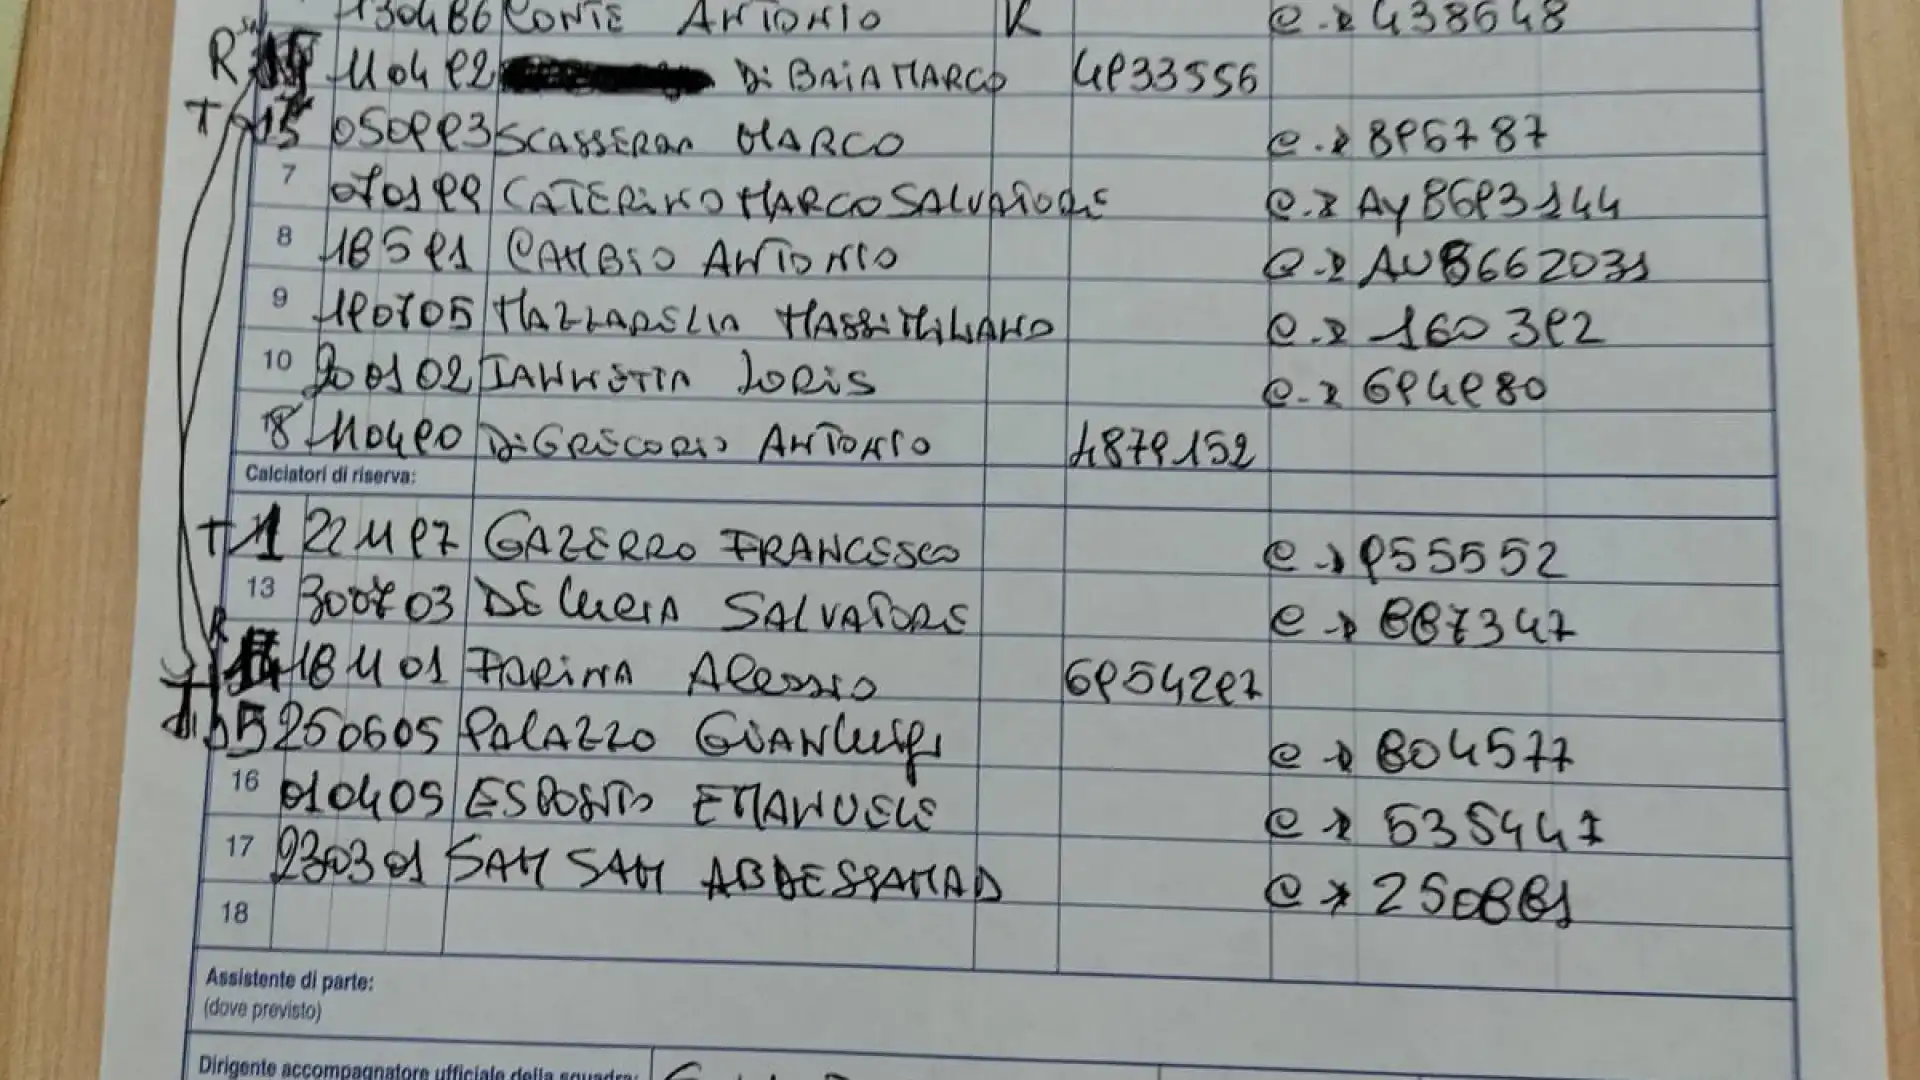 130486 CONTE ANTONIO K C.I 438648
R 110492 Di BAIA MARCO 4933556
T 15 050993 SCASSERRA MARCO C.I 895787
7 070199 CATERINO MARCO SALVATORE C.I AY8693144
8 18591 CAMBIO ANTONIO C.I AU8662031
9 190705 MAZZARELLA MASSIMILIANO C.I 160392
10 200102 IANNETTA LORIS C.I 694980
18 110490 Di GREGORIO ANTONIO 4879152
Calciatori di riserva:
T 1 221197 GAZERRO FRANCESCO C.I 955552
13 300703 DE LUCIA SALVATORE C.I 887347
R 14 181101 FARINA ALESSIO 6954297
T 15 250605 PALAZZO GIANLUIGI C.I 804577
16 010405 ESPOSITO EMANUELE C.I 535447
17 230301 SAM SAM ABDESSAMAD C.I 250881
18
Assistente di parte:
(dove previsto)
Dirigente accompagnatore ufficiale della squadra: